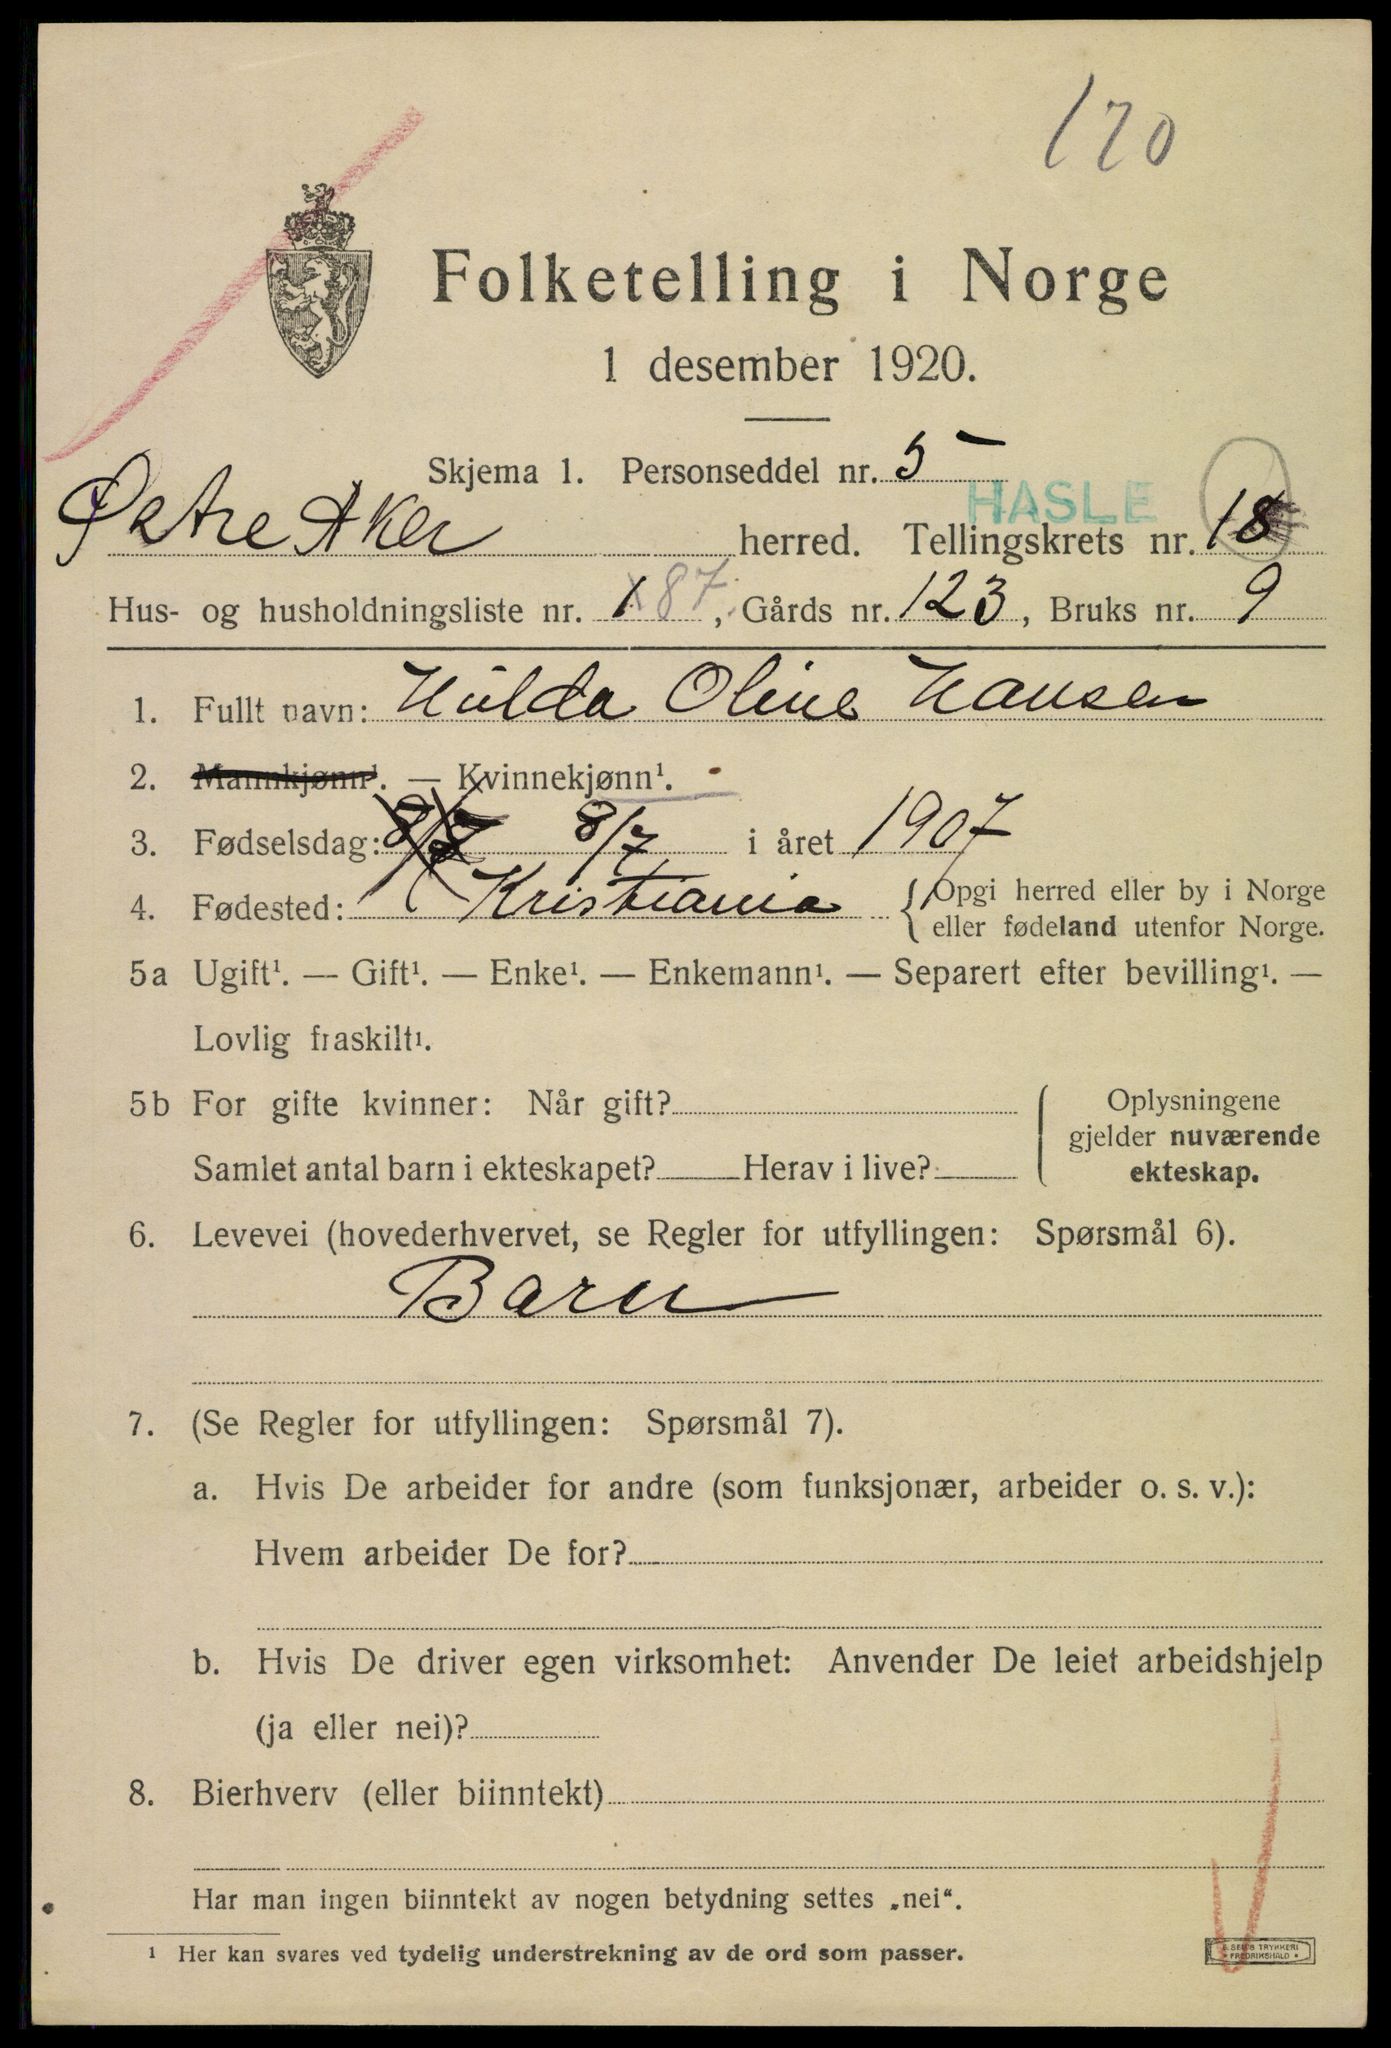 170
Folketelling i Norge
1 desember 1920.
Skjema 1. Personseddel nr. 5
HASLE
Østre Aker herred. Tellingskrets nr. 18
Hus- og husholdningsliste nr. 1 87, Gårds nr. 123, Bruks nr. 9
1. Fullt navn: Hulda Oline Hansen
2. Mannkjønn¹. — Kvinnekjønn¹.
3. Fødselsdag: 8/7 8/7 i året 1907
4. Fødested: Kristiania { Opgi herred eller by i Norge
eller fødeland utenfor Norge.
5a Ugift¹. — Gift¹. — Enke¹. — Enkemann¹. — Separert efter bevilling¹. —
Lovlig fraskilt¹.
5b For gifte kvinner: Når gift? { Oplysningene
gjelder nuværende
Samlet antal barn i ekteskapet? Herav i live? ekteskap.
6. Levevei (hovederhvervet, se Regler for utfyllingen: Spørsmål 6).
Barn
7. (Se Regler for utfyllingen: Spørsmål 7).
a. Hvis De arbeider for andre (som funksjonær, arbeider o. s. v.):
Hvem arbeider De for?
b. Hvis De driver egen virksomhet: Anvender De leiet arbeidshjelp
(ja eller nei)?
8. Bierhverv (eller biinntekt)
Har man ingen biinntekt av nogen betydning settes „nei“.
¹ Her kan svares ved tydelig understrekning av de ord som passer.
TRYKKERI
FREDRIKSHALD